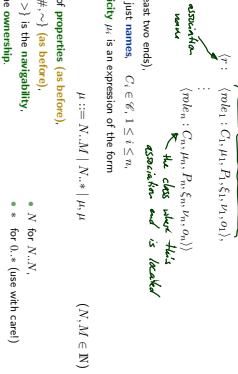 association name
⟨r : ⟨role₁ : C₁, μ₁, P₁, ξ₁, ν₁, o₁⟩,
⋮
⟨roleₙ : Cₙ, μₙ, Pₙ, ξₙ, νₙ, oₙ⟩⟩
the class where this association end is located
ast two ends),
just names, Cᵢ ∈ 𝒞, 1 ≤ i ≤ n,
icity μᵢ is an expression of the form
μ ::= N..M | N..* | μ, μ (N, M ∈ ℕ)
of properties (as before),
#, ∼} (as before),
>} is the navigability,
e ownership.
• N for N..N,
• * for 0..* (use with care!)